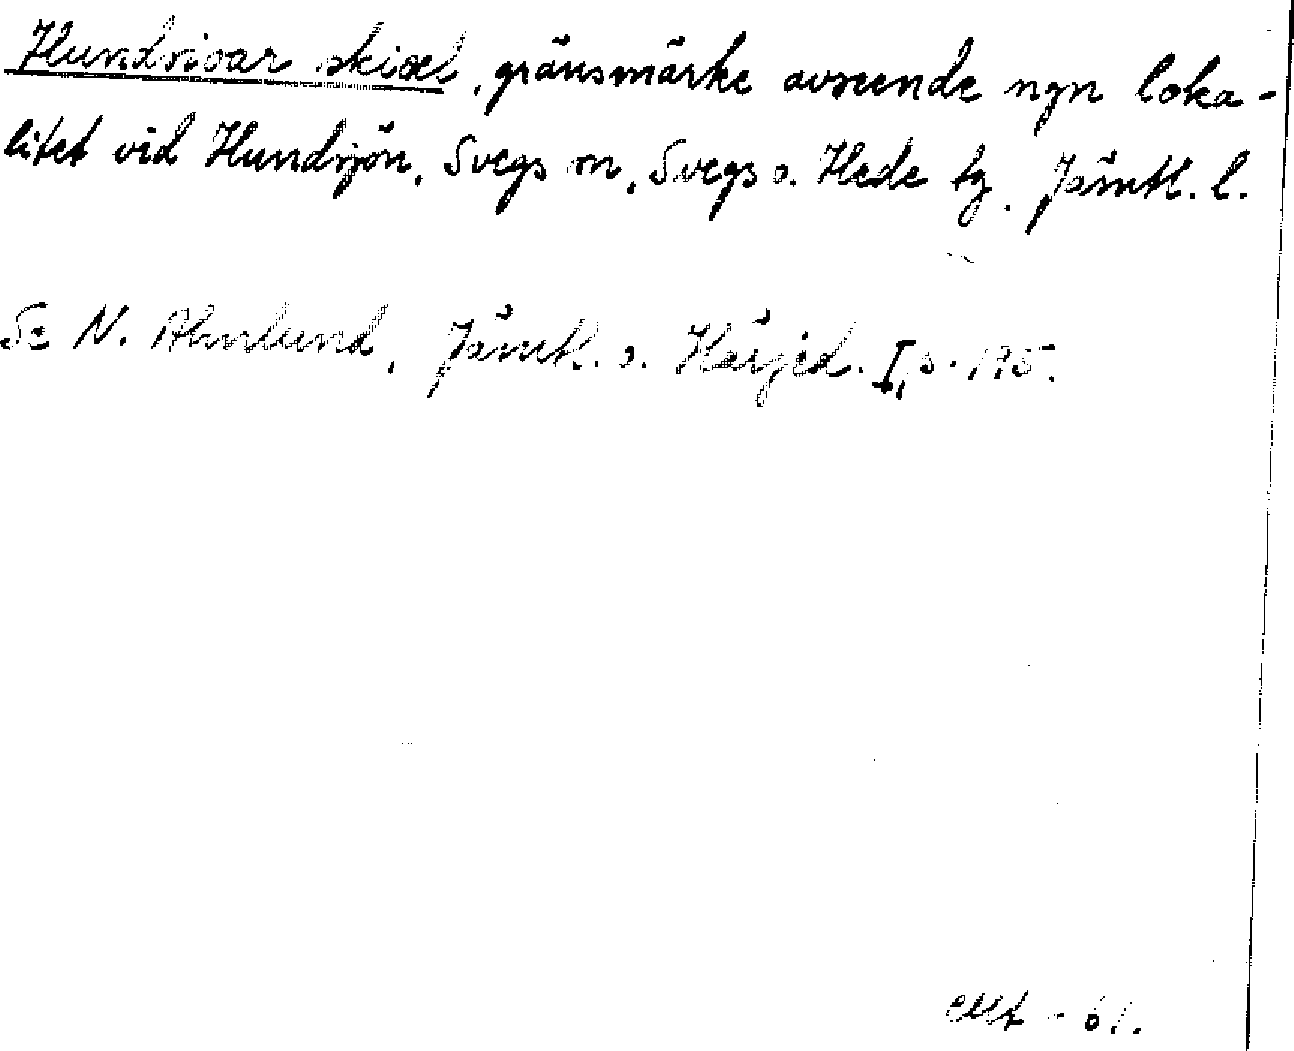 Hundsioar skiæl, gränsmärke avseende ngn loka-
litet vid Hundsjön, Svegs sn, Svegs o. Hede tg. Jämtl. l.
Se N. Ahnlund, Jämtl. o. Härjed. I, s. 175.
- 61.